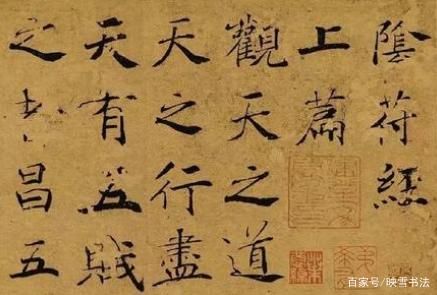 陰符經
上篇
觀天之道
天之行盡
天有五賊
之者昌五
百家号/映雪书法